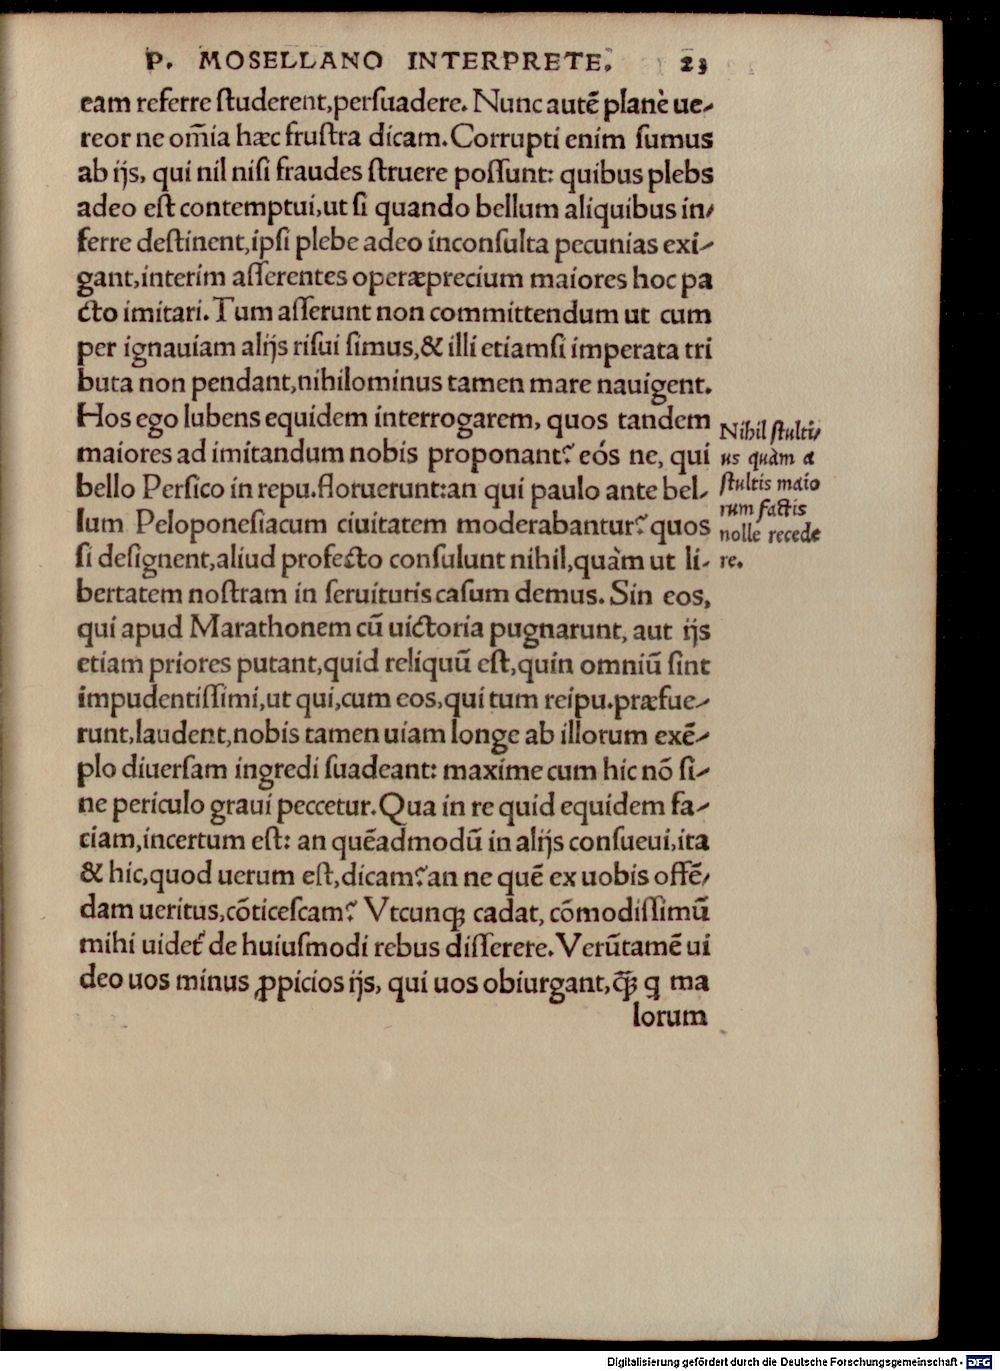 P. MOSELLANO INTERPRETE. 23
eam referre ſtuderent,perſuadere. Nunc autē planè ue-
reor ne om̄ia hæc fruſtra dicam. Corrupti enim ſumus
ab ijs, qui nil niſi fraudes ſtruere poſſunt: quibus plebs
adeo eſt contemptui,ut ſi quando bellum aliquibus in-
ferre deſtinent,ipſi plebe adeo inconſulta pecunias exi-
gant,interim aſſerentes operæprecium maiores hoc pa
cto imitari. Tum aſſerunt non committendum ut cum
per ignauiam alijs riſui ſimus,& illi etiamſi imperata tri
buta non pendant,nihilominus tamen mare nauigent.
Hos ego lubens equidem interrogarem, quos tandem
maiores ad imitandum nobis proponant? eós ne, qui
bello Perſico in repu.floruerunt:an qui paulo ante bel-
lum Peloponeſiacum ciuitatem moderabantur? quos
ſi deſignent,aliud profecto conſulunt nihil,quàm ut li-
bertatem noſtram in ſeruitutis caſum demus. Sin eos,
qui apud Marathonem cū uictoria pugnarunt, aut ijs
etiam priores putant,quid reliquū eſt,quin omniū ſint
impudentiſſimi,ut qui,cum eos,qui tum reipu.præfue-
runt,laudent,nobis tamen uiam longe ab illorum exē-
plo diuerſam ingredi ſuadeant: maxime cum hic nō ſi-
ne periculo graui peccetur. Qua in re quid equidem fa-
ciam,incertum eſt: an quēadmodū in alijs conſueui,ita
& hic,quod uerum eſt,dicam? an ne quē ex uobis offē-
dam ueritus,cōticeſcam? Vtcunqꝫ cadat, cōmodiſſimū
mihi uidet᷑ de huiuſmodi rebus diſſerere. Verūtamē ui
deo uos minus ꝓpicios ijs, qui uos obiurgant,q̄ꝫ q ma
lorum
Nihil ſtulti-
us quàm a
ſtultis maio
rum factis
nolle recede
re.
Digitalisierung gefördert durch die Deutsche Forschungsgemeinschaft - DFG